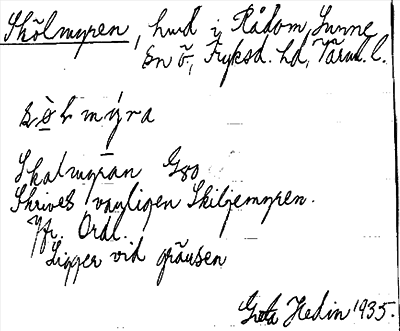 Skölmyren, hmd i Rådom, Sunne
En ö, Fryksd. hd, Värml. l.
Skalmyran G80
Skrives vanligen Skiljemyren.
Jfr. Ordl.
Ligger vid gränsen
Greta Hedin 1935.